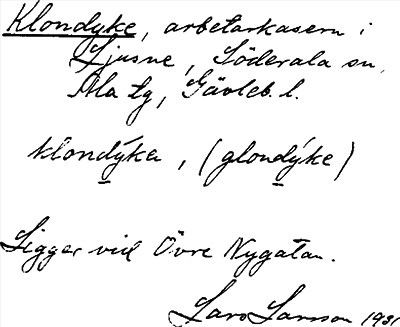 Klondyke, arbetarkasern i
Ljusne, Söderala sn,
Ala tg, Gävleb. l.
klondýka, (glondýke)
Ligger vid Övre Nygatan.
Lars Larsson 1931